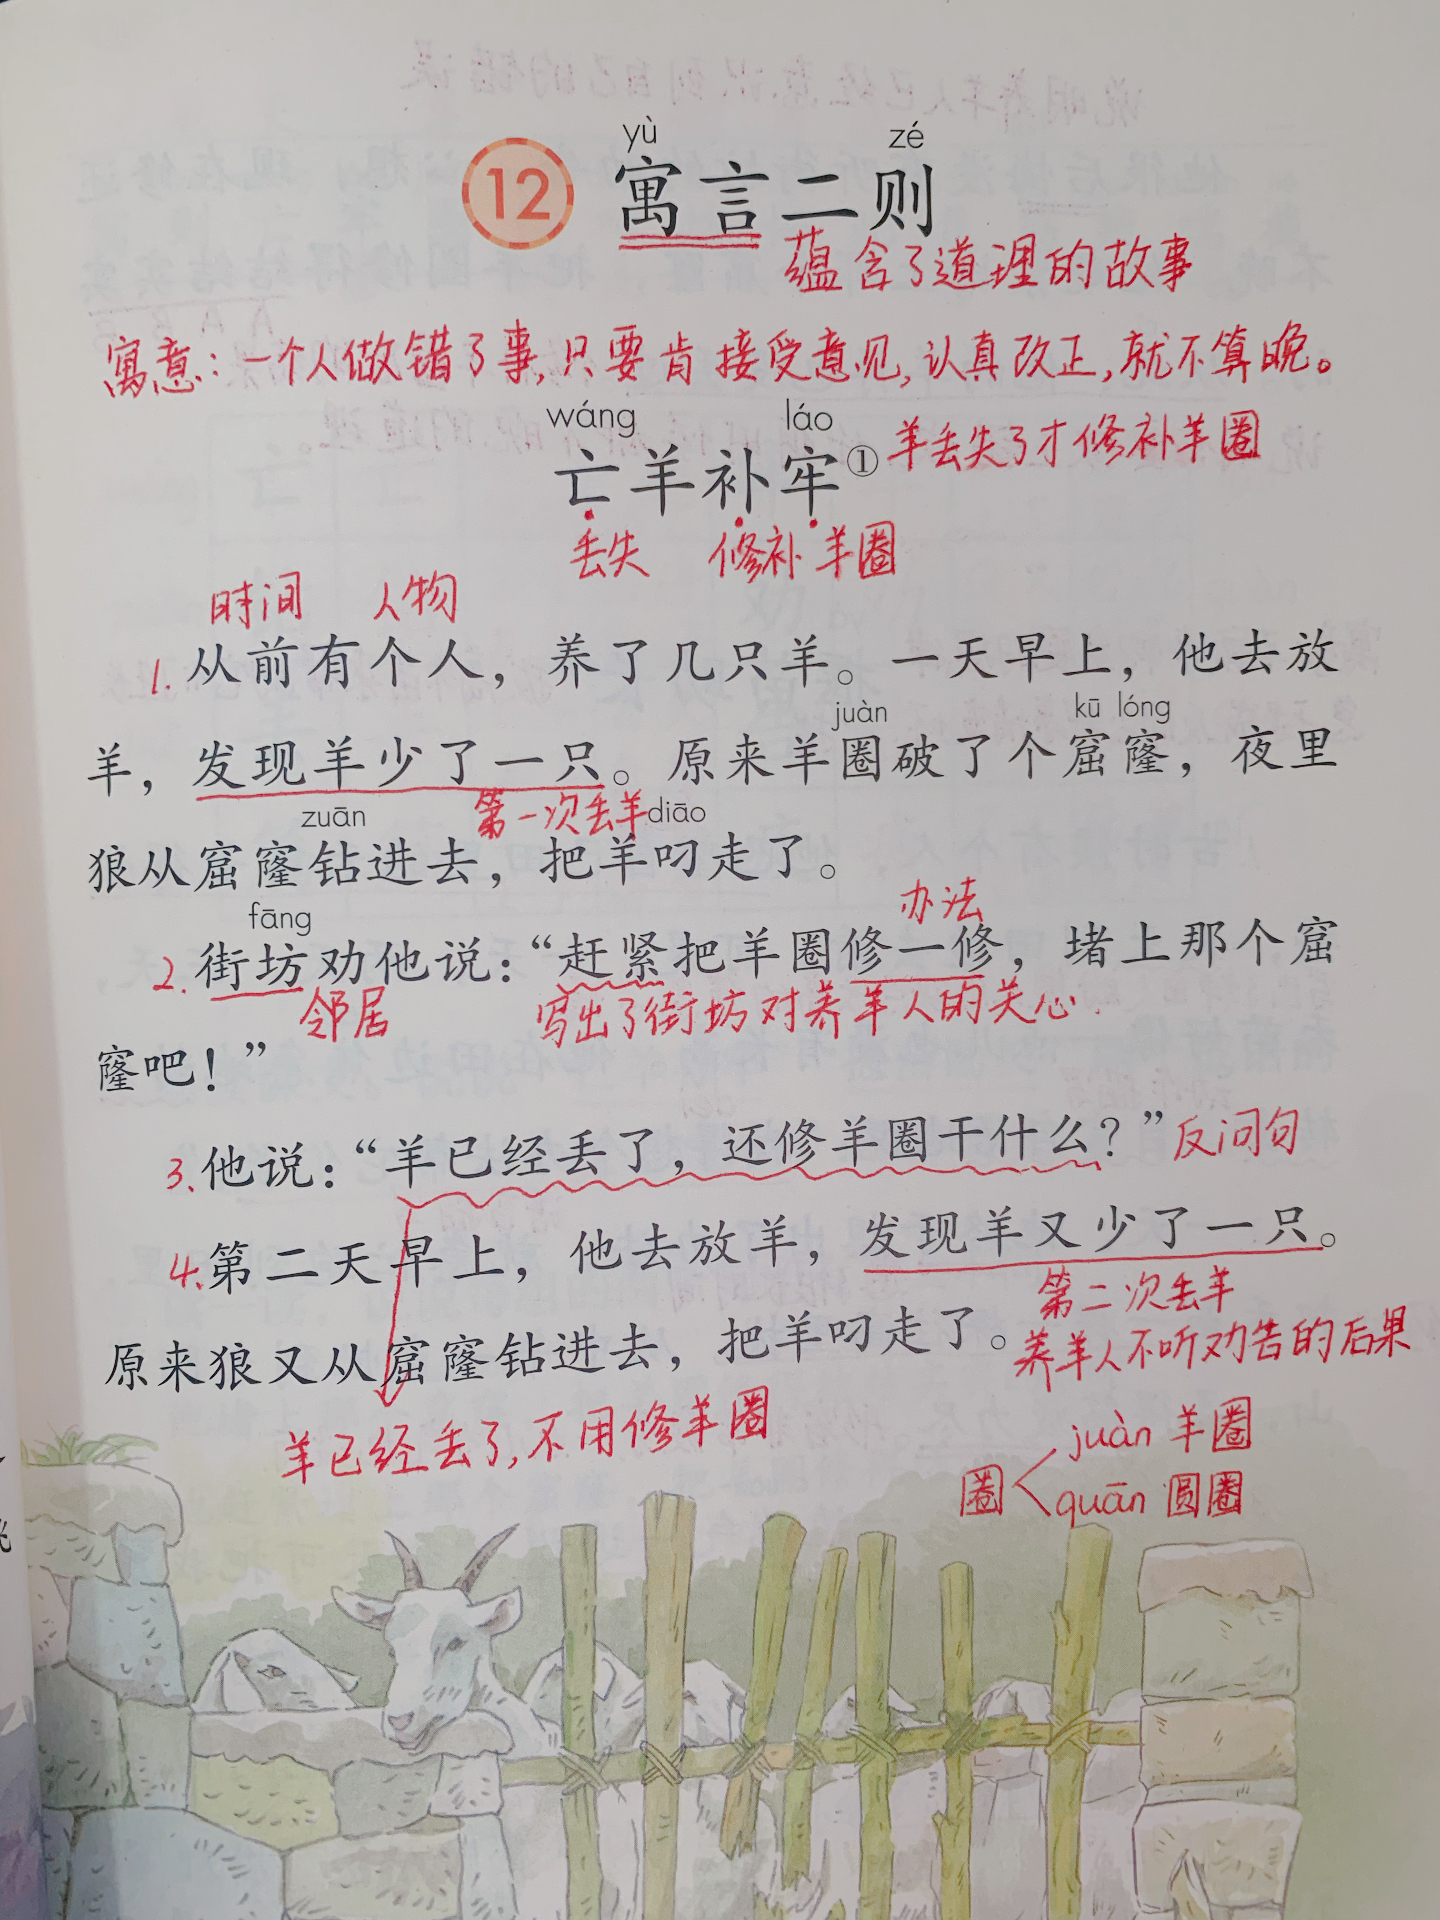 yù zé
12 寓言二则
蕴含了道理的故事
寓意：一个人做错了事，只要肯接受意见，认真改正，就不算晚。
wáng láo
亡羊补牢① 羊丢失了才修补羊圈
丢失 修补 羊圈
时间 人物
1. 从前有个人，养了几只羊。一天早上，他去放
juàn kū lóng
羊，发现羊少了一只。原来羊圈破了个窟窿，夜里
zuān 第一次丢羊 diāo
狼从窟窿钻进去，把羊叼走了。
fāng 办法
2. 街坊劝他说：“赶紧把羊圈修一修，堵上那个窟
邻居 写出了街坊对养羊人的关心.
窿吧！”
3. 他说：“羊已经丢了，还修羊圈干什么？” 反问句
4. 第二天早上，他去放羊，发现羊又少了一只。
第二次丢羊
原来狼又从窟窿钻进去，把羊叼走了。 养羊人不听劝告的后果
羊已经丢了，不用修羊圈
juàn 羊圈
圈
quān 圆圈